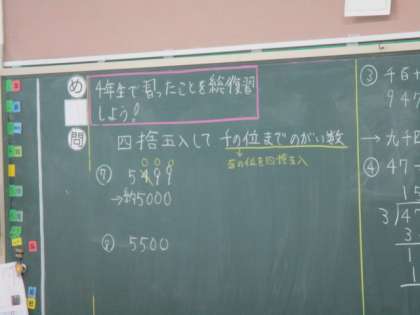 め
4年生で習ったことを総復習
しよう!
問
四捨五入して千の位までのがい数
百の位を四捨五入
000
㋐ 5499
→約5000
㋑ 5500
③
947
→九千四
④ 47
15
3)47
3
1
1